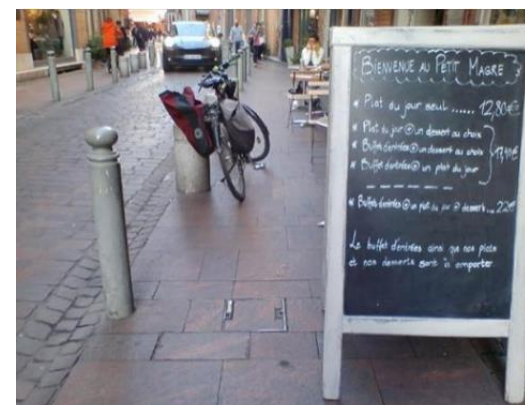 BIENVENUE AU PETIT MAGRE
* Plat du jour seul ...... 12,80€
* Plat du jour ⊕ un dessert au choix
* Buffet d'entrées ⊕ un dessert au choix
* Buffet d'entrées ⊕ un plat du jour
17,40€
* Buffet d'entrées ⊕ un plat du jour ⊕ dessert ... 22€
Le buffet d'entrées ainsi que nos plats
et nos desserts sont à emporter.